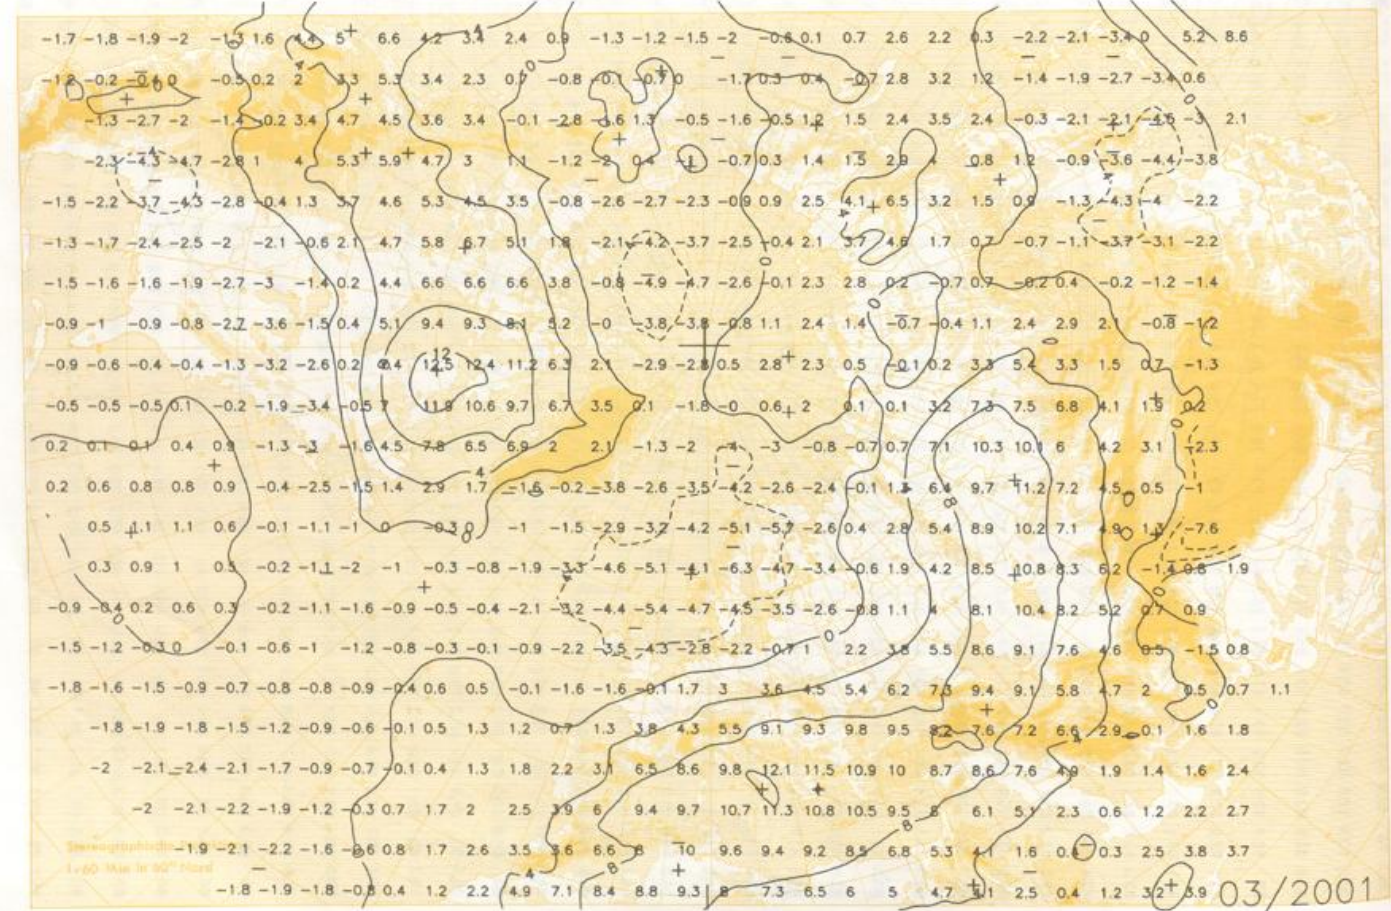 -1.7 -1.8 -1.9 -2 -1.3 1.6 4.4 5 6.6 4.2 3.4 2.4 0.9 -1.3 -1.2 -1.5 -2 -0.6 0.1 0.7 2.6 2.2 0.3 -2.2 -2.1 -3.4 0 5.2 8.6
-0.2 -0.6 0 -0.5 0.2 2 3.3 5.3 3.4 2.3 0.7 -0.8 -0.1 -0.7 0 -1.7 0.3 0.4 -0.7 2.8 3.2 1.2 -1.4 -1.9 -2.7 -3.4 0.6
-1.3 -2.7 -2 -1.4 -0.2 3.4 4.7 4.5 3.6 3.4 -0.1 -2.8 -1.6 1.3 -0.5 -1.6 -0.5 1.2 1.5 2.4 3.5 2.4 -0.3 -2.1 -2.1 -4.6 -3 2.1
-2.3 -4.3 -4.7 -2.8 1 4 5.3 5.9 4.7 3 1.1 -1.2 -2 0.4 -1 -0.7 0.3 1.4 1.5 2.9 4 0.8 1.2 -0.9 -3.6 -4.4 -3.8
-1.5 -2.2 -3.7 -4.3 -2.8 -0.4 1.3 3.7 4.6 5.3 4.5 3.5 -0.8 -2.6 -2.7 -2.3 -0.9 0.9 2.5 4.1 6.5 3.2 1.5 0.9 -1.3 -4.3 -4 -2.2
-1.3 -1.7 -2.4 -2.5 -2 -2.1 -0.6 2.1 4.7 5.8 6.7 5.1 1.8 -2.1 -4.2 -3.7 -2.5 -0.4 2.1 3.7 4.6 1.7 0.7 -0.7 -1.1 -3.7 -3.1 -2.2
-1.5 -1.6 -1.6 -1.9 -2.7 -3 -1.4 0.2 4.4 6.6 6.6 6.6 3.8 -0.8 -4.9 -4.7 -2.6 -0.1 2.3 2.8 0.2 -0.7 0.7 -0.2 0.4 -0.2 -1.2 -1.4
-0.9 -1 -0.9 -0.8 -2.7 -3.6 -1.5 0.4 5.1 9.4 9.3 8.1 5.2 -0 -3.8 -3.8 -0.8 1.1 2.4 1.4 -0.7 -0.4 1.1 2.4 2.9 2.1 -0.8 -1.2
-0.9 -0.6 -0.4 -0.4 -1.3 -3.2 -2.6 0.2 8.4 12.5 12.4 11.2 6.3 2.1 -2.9 -2.8 0.5 2.8 2.3 0.5 -0.1 0.2 3.3 5.4 3.3 1.5 0.7 -1.3
-0.5 -0.5 -0.5 0.1 -0.2 -1.9 -3.4 -0.5 7 11.9 10.6 9.7 6.7 3.5 0.1 -1.8 -0 0.6 2 0.1 0.1 3.2 7.3 7.5 6.8 4.1 1.9 0.2
0.2 0.1 0.1 0.4 0.9 -1.3 -3 -1.6 4.5 7.8 6.5 6.9 2 2.1 -1.3 -2 -4 -3 -0.8 -0.7 0.7 7.1 10.3 10.1 6 4.2 3.1 -2.3
0.2 0.6 0.8 0.8 0.9 -0.4 -2.5 -1.5 1.4 2.9 1.7 -1.6 -0.2 -3.8 -2.6 -3.5 -4.2 -2.6 -2.4 -0.1 1.3 6.4 9.7 11.2 7.2 4.5 0.5 -1
0.5 1.1 1.1 0.6 -0.1 -1.1 -1 0 -0.3 0 -1 -1.5 -2.9 -3.2 -4.2 -5.1 -5.7 -2.6 0.4 2.8 5.4 8.9 10.2 7.1 4.9 1.3 -7.6
0.3 0.9 1 0.5 -0.2 -1.1 -2 -1 -0.3 -0.8 -1.9 -3.3 -4.6 -5.1 -4.1 -6.3 -4.7 -3.4 -0.6 1.9 4.2 8.5 10.8 8.3 6.2 -1.4 0.8 1.9
-0.9 -0.4 0.2 0.6 0.3 -0.2 -1.1 -1.6 -0.9 -0.5 -0.4 -2.1 -3.2 -4.4 -5.4 -4.7 -4.5 -3.5 -2.6 -0.8 1.1 4 8.1 10.4 8.2 5.2 0.7 0.9
-1.5 -1.2 -0.3 0 -0.1 -0.6 -1 -1.2 -0.8 -0.3 -0.1 -0.9 -2.2 -3.5 -4.3 -2.8 -2.2 -0.7 1 2.2 3.8 5.5 8.6 9.1 7.6 4.6 0.5 -1.5 0.8
-1.8 -1.6 -1.5 -0.9 -0.7 -0.8 -0.8 -0.9 -0.4 0.6 0.5 -0.1 -1.6 -1.6 -0.1 1.7 3 3.6 4.5 5.4 6.2 7.3 9.4 9.1 5.8 4.7 2 0.5 0.7 1.1
-1.8 -1.9 -1.8 -1.5 -1.2 -0.9 -0.6 -0.1 0.5 1.3 1.2 0.7 1.3 3.8 4.3 5.5 9.1 9.3 9.8 9.5 8.2 7.6 7.2 6.6 2.9 0.1 1.6 1.8
-2 -2.1 -2.4 -2.1 -1.7 -0.9 -0.7 -0.1 0.4 1.3 1.8 2.2 3.1 6.5 8.6 9.8 12.1 11.5 10.9 10 8.7 8.6 7.6 4.9 1.9 1.4 1.6 2.4
-2 -2.1 -2.2 -1.9 -1.2 -0.3 0.7 1.7 2 2.5 3.9 6 9.4 9.7 10.7 11.3 10.8 10.5 9.5 8 6.1 5.1 2.3 0.6 1.2 2.2 2.7
-1.9 -2.1 -2.2 -1.6 -0.6 0.8 1.7 2.6 3.5 3.6 6.6 8 10 9.6 9.4 9.2 8.5 6.8 5.3 4.1 1.6 0.4 0.3 2.5 3.8 3.7
-1.8 -1.9 -1.8 -0.8 0.4 1.2 2.2 4.9 7.1 8.4 8.8 9.3 8 7.3 6.5 6 5 4.7 4.1 2.5 0.4 1.2 3.2 3.9
03/2001